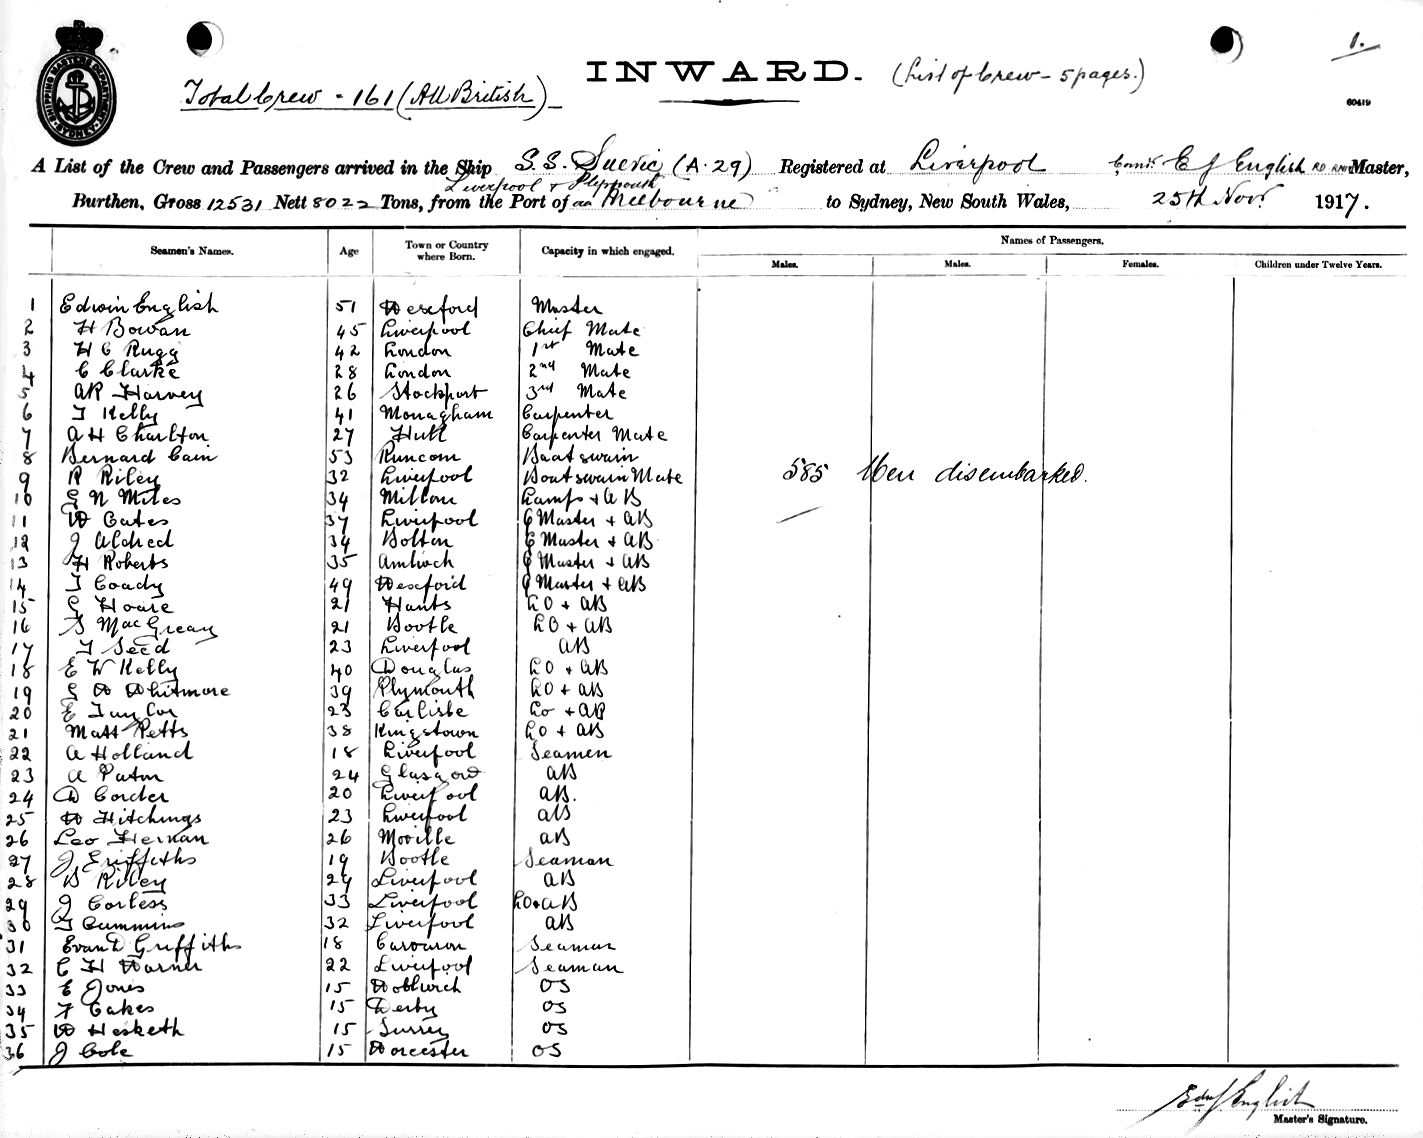 1.
INWARD. (List of Crew - 5 pages.)
Total Crew - 161 (All British)
60419
SHIPPING MASTERS DEPARTMENT SYDNEY
A List of the Crew and Passengers arrived in the Ship S.S. Suevic (A·29) Registered at Liverpool E J English RD RNR Master,
Liverpool & Plymouth
Burthen, Gross 12531 Nett 8022 Tons, from the Port of Melbourne to Sydney, New South Wales, 25th Novr 1917.
Seamen's Names. Age Town or Country where Born. Capacity in which engaged. Names of Passengers.
Males. Males. Females. Children under Twelve Years.
1 Edwin English 51 Hereford Master
2 H Bowan 45 Liverpool Chief Mate
3 H C Rugg 42 London 1st Mate
4 C Clarke 28 London 2nd Mate
5 AR Harvey 26 Stockport 3rd Mate
6 T Kelly 41 Monagham Carpenter
7 A H Charlton 27 Hull Carpenter Mate
8 Bernard Cain 53 Runcorn Boatswain
9 R Riley 32 Liverpool Boatswain Mate
585 Men disembarked.
10 G N Miles 34 Millom Lamps & AB
11 W Cates 37 Liverpool Q Master & AB
12 J Aldred 34 Bolton Q Master & AB
13 H Roberts 35 Amlwch Q Master & AB
14 T Coady 49 Wexford Q Master & AB
15 G Hoare 21 Hants LO & AB
16 S MacGreay 21 Bootle LO & AB
17 T Seed 23 Liverpool AB
18 E W Kelly 40 Douglas LO & AB
19 G W Whitmore 39 Plymouth LO & AB
20 E Taylor 23 Carlisle LO & AB
21 Matt Petts 38 Kingstown LO & AB
22 A Holland 18 Liverpool Seamen
23 A Paton 24 Glasgow AB
24 W Corder 20 Liverpool AB.
25 W Hitchings 23 Liverpool AB
26 Leo Hernan 26 Moville AB
27 J Griffiths 19 Bootle Seaman
28 B Riley 29 Liverpool AB
29 J Corless 33 Liverpool LO & AB
30 T Cummins 32 Liverpool AB
31 Evan D Griffiths 18 Seaman
32 C H Warner 22 Liverpool Seaman
33 E Jones 15 Woolwich OS
34 F Cakes 15 Derby OS
35 W Hesketh 15 Surrey OS
36 J Cole 15 Worcester OS
Edw J English
Master's Signature.